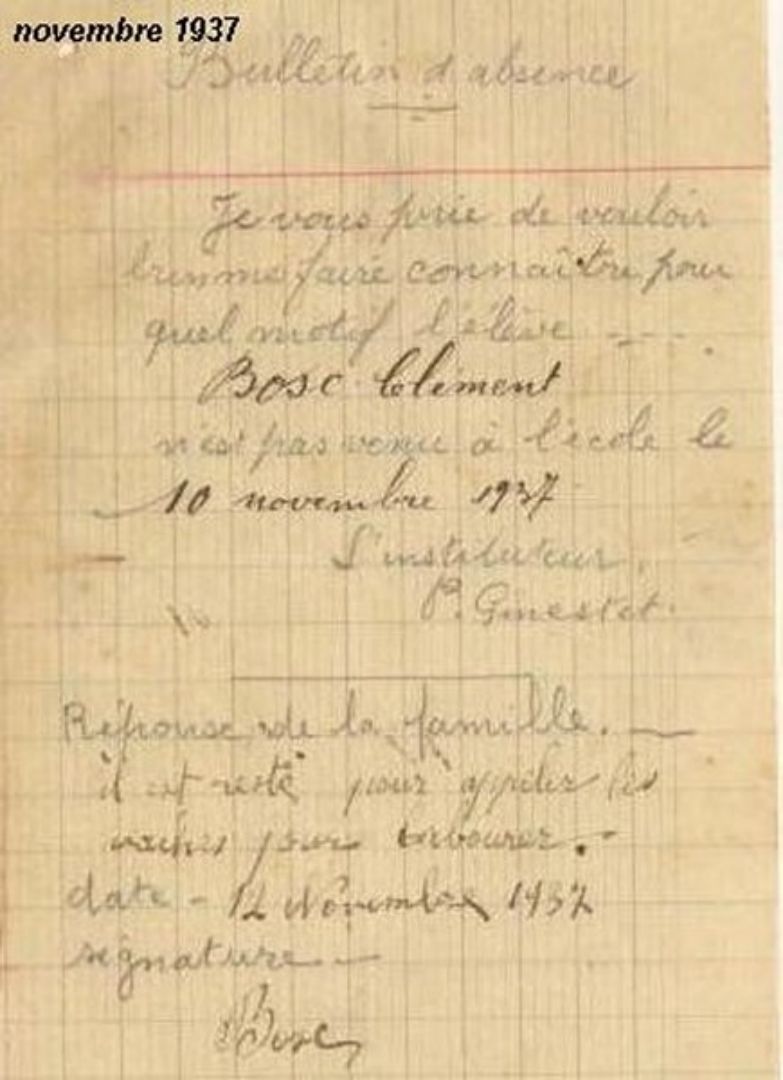 novembre 1937
Bulletin d'absence
Je vous prie de vouloir
bien me faire connaître pour
quel motif l'élève
Bosc Clément
n'est pas venu à l'école le
10 novembre 1937
L'instituteur,
P. Ginestet.
Réponse de la famille.
il est resté pour appeler les
vaches pour labourer.
date - 12 Novembre 1937
signature
Bosc